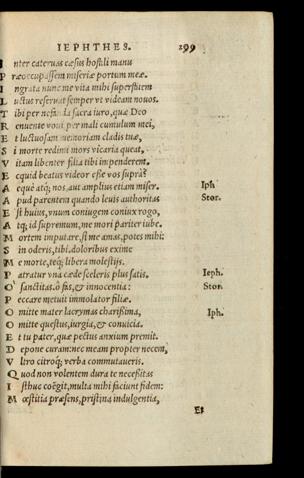 IEPHTHES. 199
Inter cateruas cæsus hostili manu
Præoccupassem miseriæ portum meæ.
Ingrata nunc me vita mihi superstitem
Luctus reseruat semper vt videam nouos.
Tibi per nefanda sacra iuro, quæ Deo
Renuente voui per mali cumulum mei,
Et luctuosam memoriam cladis tuæ,
Si morte redimi mors vicaria queat,
Vitam libenter filia tibi impenderem.
Ecquid beatus videor esse vos supra?
Aequè atq; nos, aut amplius etiam miser. Iph
Apud parentem quando leuis authoritas Stor.
Est huius, vnum coniugem coniux rogo,
Atq; id supremum, me mori pariter iube.
Mortem imputare, si me amas, potes mihi:
Sin oderis, tibi. doloribus exime
Me morte, teq; libera molestijs.
Patratur vna cæde sceleris plus satis. Ieph.
O sanctitas. ô fas, & innocentia: Stor.
Peccare metuit immolator filiæ.
Omitte mater lacrymas charissima, Iph.
Omitte questus, iurgia, & conuicia.
Et tu pater, quæ pectus anxium premit.
Depone curam: nec meam propter necem,
Vltro citroq; verba commutaueris.
Quod non volentem dura te necessitas
Isthuc coëgit, multa mihi faciunt fidem:
Mœstitia præsens, pristina indulgentia,
Et